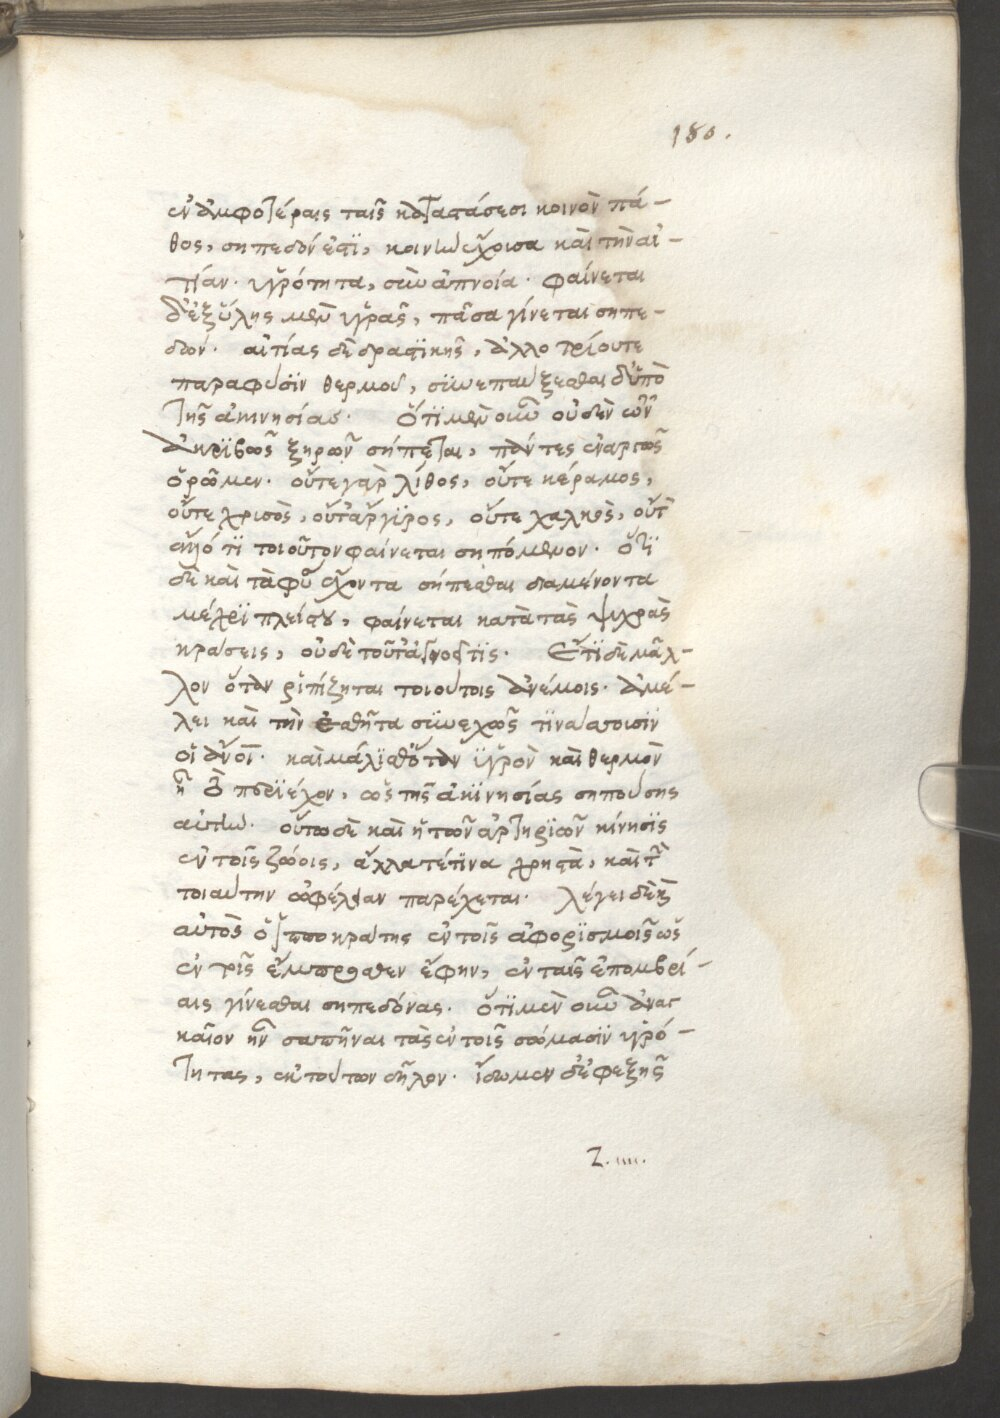 180.
ἐν ἀμφοτέραις ταῖς καταστάσεσι κοινὸν πά-
θος, σηπεδόν ἐστϊ, κοινὴν ἔχουσα καὶ τὴν αἰ-
τίαν. ὑγρότητα, σὺν ἀπνοία. φαίνεται
δ' ἐξ ὕλης μὲν ὑγρᾶς, πᾶσα γίνεται σηπε-
δόν. αἰτίας δὲ δραστϊκῆς, ἀλλοτρίου τε
παρὰ φύσϊν θερμοῦ, συνεπαύξεσθαι δ' ὑπὸ
τῆς ἀκινησίας. ὅτϊ μὲν οὖν οὐδὲν τῶν
ἀκρϊβῶς ξηρῶν σήπεται, πάντες ἐναργῶς
ὁρῶμεν. οὔτε γὰρ λίθος, οὔτε κέραμος,
οὔτε χρυσὸς, οὔτ' ἄργϋρος, οὔτε χαλκὸς, οὔτ'
ἄλλό τι τοιοῦτον φαίνεται σηπόμενον. ὅτϊ
δὲ καὶ τὰ φύσιν ἔχοντα σήπεσθαι διαμένοντα
μέχρϊ πλείστου, φαίνεται κατὰ τὰς ψυχρὰς
κράσεις, οὐδὲ τοῦτ' ἀγνοεῖ τϊς. Ἔτϊ δὲ μᾶλ-
λον ὅταν ῥϊπίζηται τοιούτοις ἀνέμοις. ἀμέ-
λει καὶ τὴν ἐσθῆτα συνεχῶς τϊνάσσουσϊν
οἱ ἄνοι. καὶ μάλϊσθ' ὅταν ὑγρὸν καὶ θερμὸν
ᾖ τὸ περϊέχον, ὡς τῆς ἀκϊνησίας σηπούσης
αὐτήν. οὕτω δὲ καὶ ἡ τῶν ἀρτηρϊῶν κίνησϊς
ἐν τοῖς ζώοις, ἄλλα τέ τϊνα χρηστὰ, καὶ τὴν
τοιαύτην ὠφέλειαν παρέχεται. λέγει δὲ καὶ
αὐτὸς ὁ ἱπποκράτης ἐν τοῖς ἀφορϊσμοῖς ὡς
ἐν τοῖς ἔμπροσθεν ἔφην, ἐν ταῖς ἐπομβρί-
αις γίνεσθαι σηπεδόνας. ὅτϊ μὲν οὖν ἀναγ
καῖον ἦν σαπῆναι τὰς ἐν τοῖς σώμασϊν ὑγρό-
τητας, ἐκ τούτων δῆλον. ἴδωμεν δ' ἐφεξῆς
z. iiii.